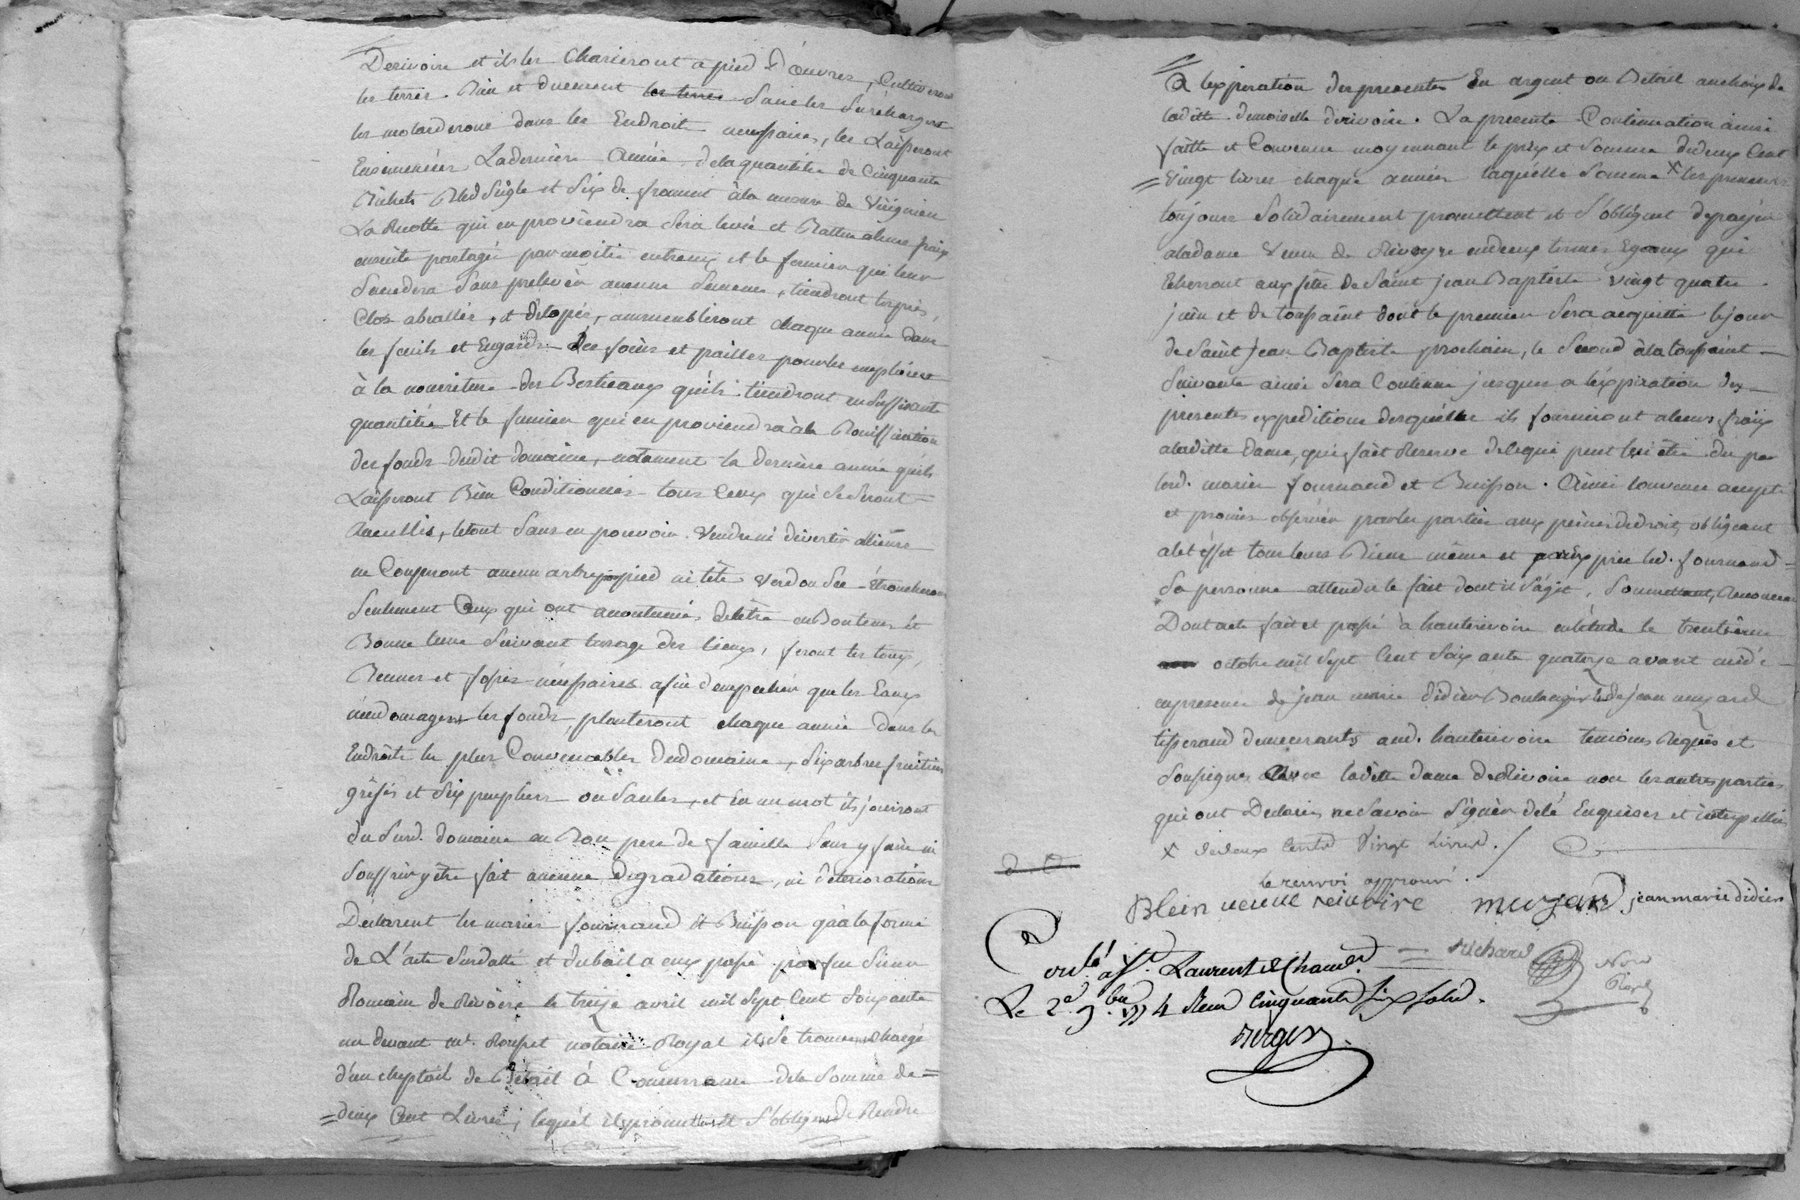 Derivoire et ils les charieront a pied d'œuvres, Cultiveront
les terres. Bien et duement les terres Sans les Surcharger
les motarderont dans les Endroits necessaires, les Laisseront
Ensemencées La derniere année de la quantité de Cinquante
Bichets Bled Sigle et Six de froment à la mesure de Virignieu
La Recolte qui en proviendra Sera levée et Battue a leurs fraix
ensuite partagée par moitié entr'eux et le fermier qui leur
Succedera Sans prelever aucune Semence, tiendront les prés,
Clos abeallés, et détopés, ammenbleront chaque année dans
les fenils et Engards des foins et pailles pour les emploier
à la nourriture des Bestieaux qu'ils tiendront en Suffisante
quantité Et le fumier qui en proviendra à la Bonification
des fonds dudit domaine, notament la derniere année qu'ils
Laisseront Bien Conditionnés tous Ceux qui Se Seront =
Recuellis, le tout Sans en pouvoir Vendre ni divertir allieurs
ne Couperont aucun arbre par pied ni tête Verd ou Sec
Seulement Ceux qui ont accoutumés delêtre
Bonne lune Suivant lusage des lieux, feront les
et fossés necessaires afin d'empecher que les Eaux
n'endomagent les fonds, planteront chaque année dans les
Endroits les plus Convenables dudomaine, Six arbres fruitiers
gréfés et Six peupliers ou Saules, et En un mot ils jouiront
du Surd. domaine en Bon pere de famille Sans y faire ni
Souffrir y être fait aucune degradations, ni deteriorations
Declarent les mariés fournand et Buisson qu'à la forme
de L'acte Surdatté et du bail a eux passé par feu Sieur
Romain de Rivoire le treize avril mil Sept Cent Soixante
un devant me. notaire Royal ils Se trouvent Chargé
d'un cheptail de Bétail à Concurrance de la Somme de =
= deux Cent Livres, lequél ils promettent et S'obligent de Rendre
= A lexpiration des presentes En argent ou Bétail au choix de
laditte demoiselle derivoire. La presente Continuation ainsi
faitte et Convenue moyennant le prix et Somme de deux Cent
= vingt livres chaque année laquélle Somme X les preneurs
toujours Solidairement promettent et S'obligent de payer
a la dame Veuve de Rivoyre en deux termes Egaux qui
Echerront aux fêtes de Saint jean Baptiste vingt quatre
juin et de toussaint dont le premier Sera acquitté le jour
de Saint jean Baptiste prochain, le Second à la toussaint
Suivante ainsi Sera Continué jusques a léxpiration des
presentes expeditions desquélles ils fourniront a leurs fraix
a laditte Dame, qui fait Reserve de ce qui peut lui être du par
lesd. mariés fournand et Buisson. Ainsi convenu accepté
et promis observer par les parties aux peines de droit, obligeant
a cet éffet tous leurs Biens même et par expres led. fournand =
Sa personne attendu le fait dont il S'agit, Soumettant, Renoncant
Dont acte fait et passé à hauterivoire en létude le trentieme
octobre mil Sept Cent Soixante quatorze avant midi
en presence de jean marie didier Boulanger et de jean muzard
tisserand demeurants aud. hauterivoire temoins Requis et
Soussignes avec laditte dame de Rivoire non les autres parties
qui ont Declaré ne Savoir Signer de ce Enquises et interpellés
X de deux Cents Vingt Livres. /
le renvoi approuvé.
Blein veuve reivoire muzard jeanmarie didier
Richard Nore Royal
Conlé. a St. Laurent de Cham.
Le 2e. 9.bre 1774 Reçu Cinquante Six Sols.